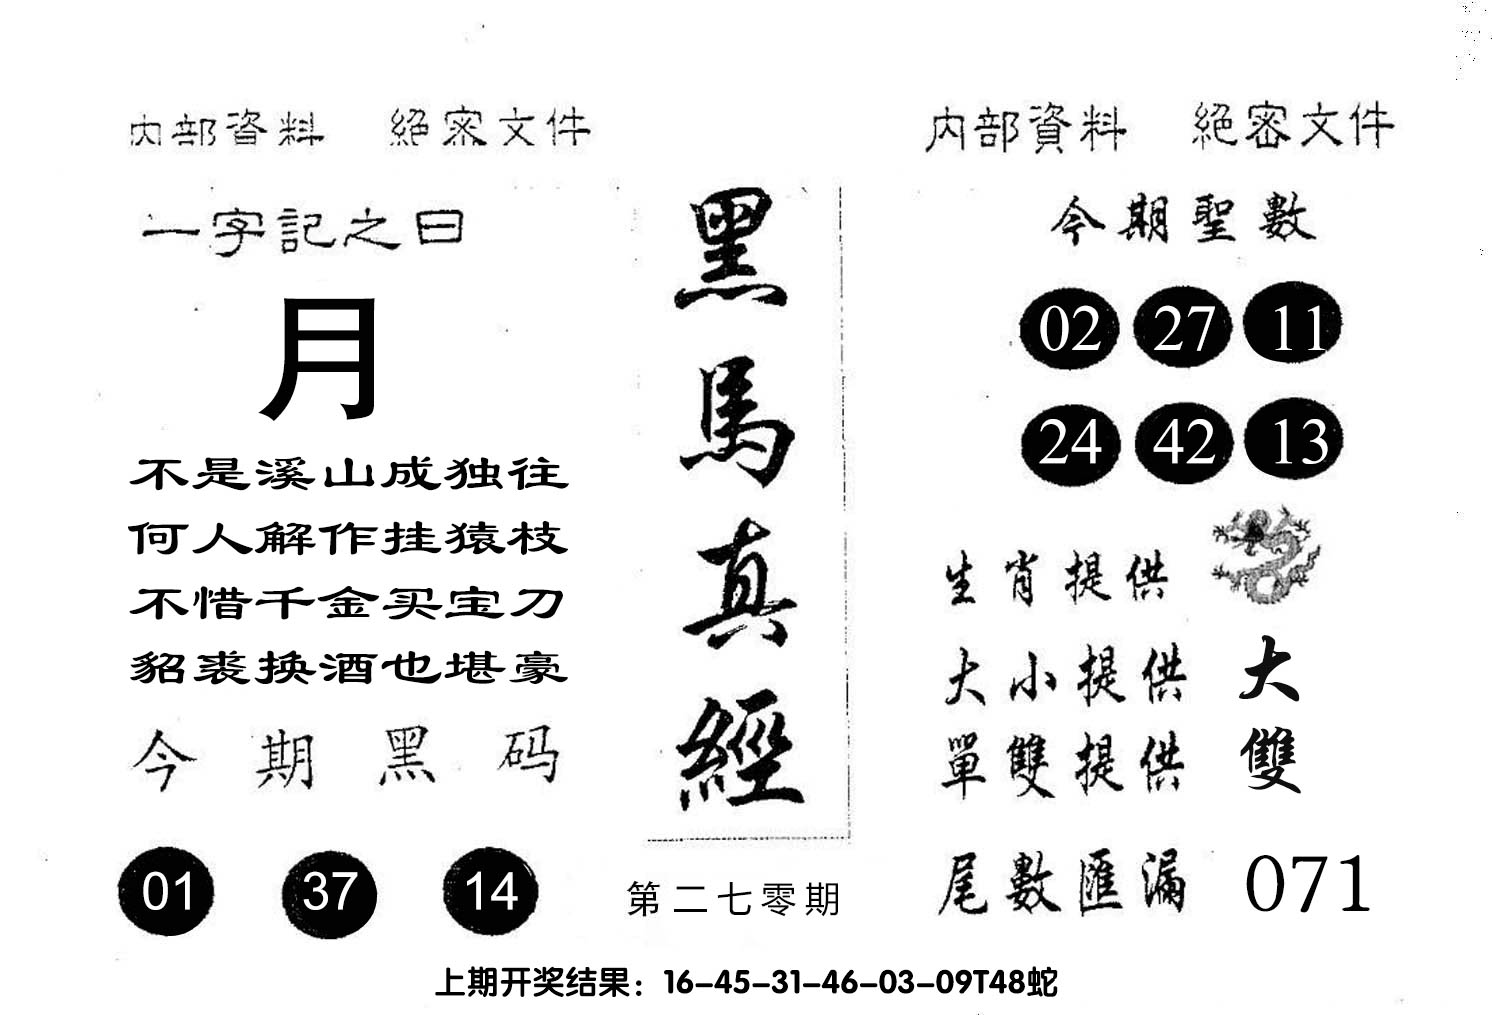 内部資料 絕密文件
一字記之曰
月
不是溪山成独往
何人解作挂猿枝
不惜千金买宝刀
貂裘换酒也堪豪
今期黑码
01 37 14
黑馬真經
第二七零期
内部資料 絕密文件
今期聖數
02 27 11
24 42 13
生肖提供
大小提供 大
單雙提供 雙
尾數匯漏 071
上期开奖结果：16-45-31-46-03-09T48蛇